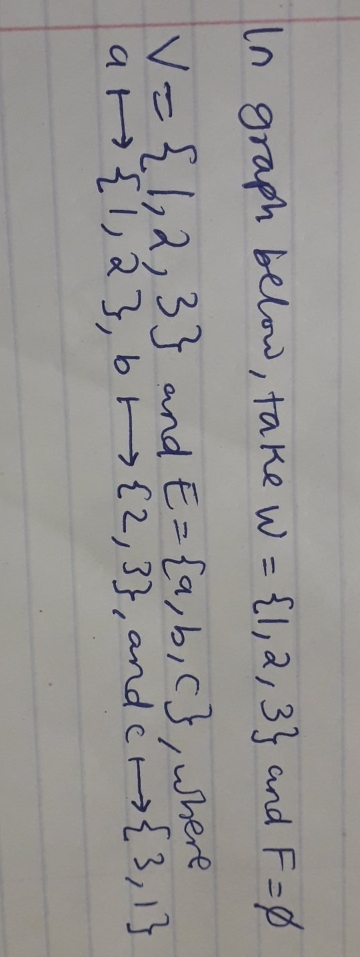 In graph below, take W = {1, 2, 3} and F = ∅
V = {1, 2, 3} and E = {a, b, c}, where
a ↦ {1, 2}, b ↦ {2, 3}, and c ↦ {3, 1}